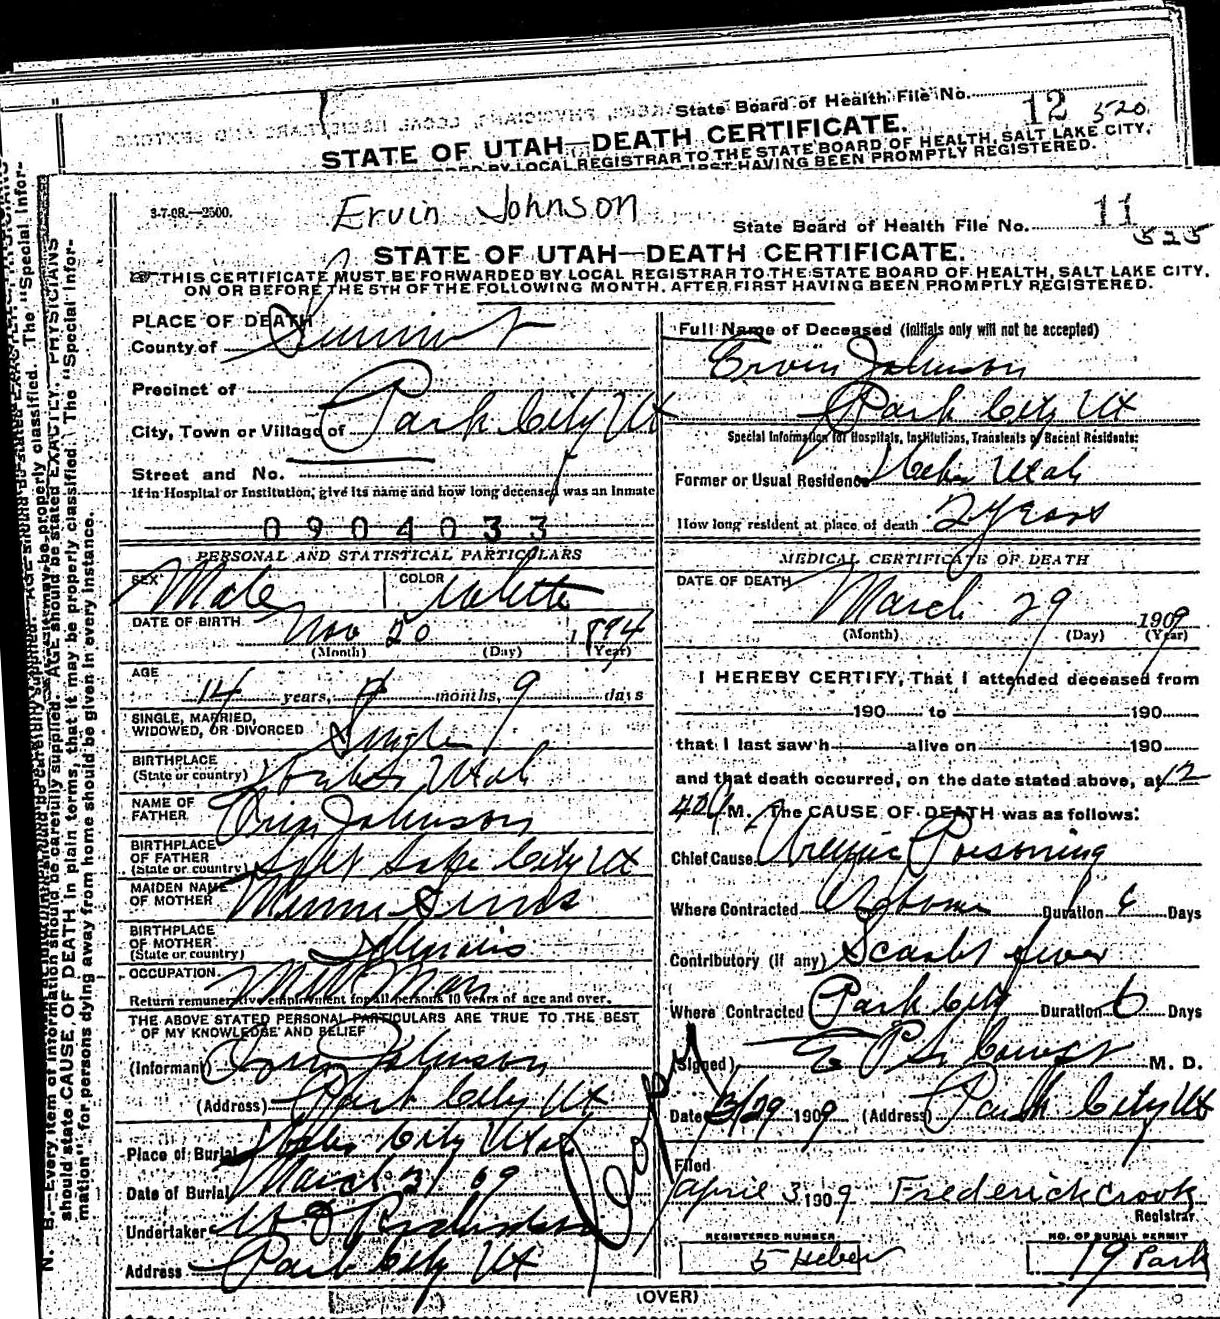 State Board of Health File No. 12 520
STATE OF UTAH—DEATH CERTIFICATE.
BY LOCAL REGISTRAR TO THE STATE BOARD OF HEALTH, SALT LAKE CITY,
FIRST HAVING BEEN PROMPTLY REGISTERED.
3-7-08.—2500.
Ervin Johnson
State Board of Health File No. 11
525
STATE OF UTAH—DEATH CERTIFICATE.
THIS CERTIFICATE MUST BE FORWARDED BY LOCAL REGISTRAR TO THE STATE BOARD OF HEALTH, SALT LAKE CITY,
ON OR BEFORE THE 5TH OF THE FOLLOWING MONTH, AFTER FIRST HAVING BEEN PROMPTLY REGISTERED.
PLACE OF DEATH
County of Summit
Precinct of
City, Town or Village of Park City Ut
Street and No.
If in Hospital or Institution, give its name and how long deceased was an Inmate
0904033
PERSONAL AND STATISTICAL PARTICULARS
SEX Male COLOR White
DATE OF BIRTH Nov 20 1894
(Month) (Day) (Year)
AGE
14 years, months, 9 days
SINGLE, MARRIED,
WIDOWED, OR DIVORCED Single
BIRTHPLACE
(State or country) Utah
NAME OF
FATHER Orin Johnson
BIRTHPLACE
OF FATHER
(State or country) Salt Lake City Ut
MAIDEN NAME
OF MOTHER
BIRTHPLACE
OF MOTHER
(State or country) Illinois
OCCUPATION Mill Man
Return remunerative employment for all persons 10 years of age and over.
THE ABOVE STATED PERSONAL PARTICULARS ARE TRUE TO THE BEST
OF MY KNOWLEDGE AND BELIEF
(Informant) Orin Johnson
(Address) Park City Ut
Place of Burial Heber City Utah
Date of Burial March 31 09
Undertaker
Address Park City Ut
Copy
Full Name of Deceased (initials only will not be accepted)
Ervin Johnson
Park City Ut
Special Information for Hospitals, Institutions, Transients or Recent Residents:
Former or Usual Residence Heber Utah
How long resident at place of death 2 years
MEDICAL CERTIFICATE OF DEATH
DATE OF DEATH
March 29 1909
(Month) (Day) (Year)
I HEREBY CERTIFY, That I attended deceased from
190 to 190
that I last saw h alive on 190
and that death occurred, on the date stated above, at 12
M. The CAUSE OF DEATH was as follows:
Chief Cause Uremic Poisoning
Where Contracted At home Duration Days
Contributory (if any) Scarlet fever
Where Contracted Park City Duration 6 Days
(Signed) M. D.
Date 3/29 1909 (Address) Park City Ut
Filed
April 3 1909 Frederick Crook
Registrar
REGISTERED NUMBER
5 Heber
NO. OF BURIAL PERMIT
19 Park
(OVER)
N. B.—Every item of information should be carefully supplied. AGE should be stated EXACTLY. PHYSICIANS
should state CAUSE OF DEATH in plain terms, that it may be properly classified. The "Special Infor-
mation" for persons dying away from home should be given in every instance.